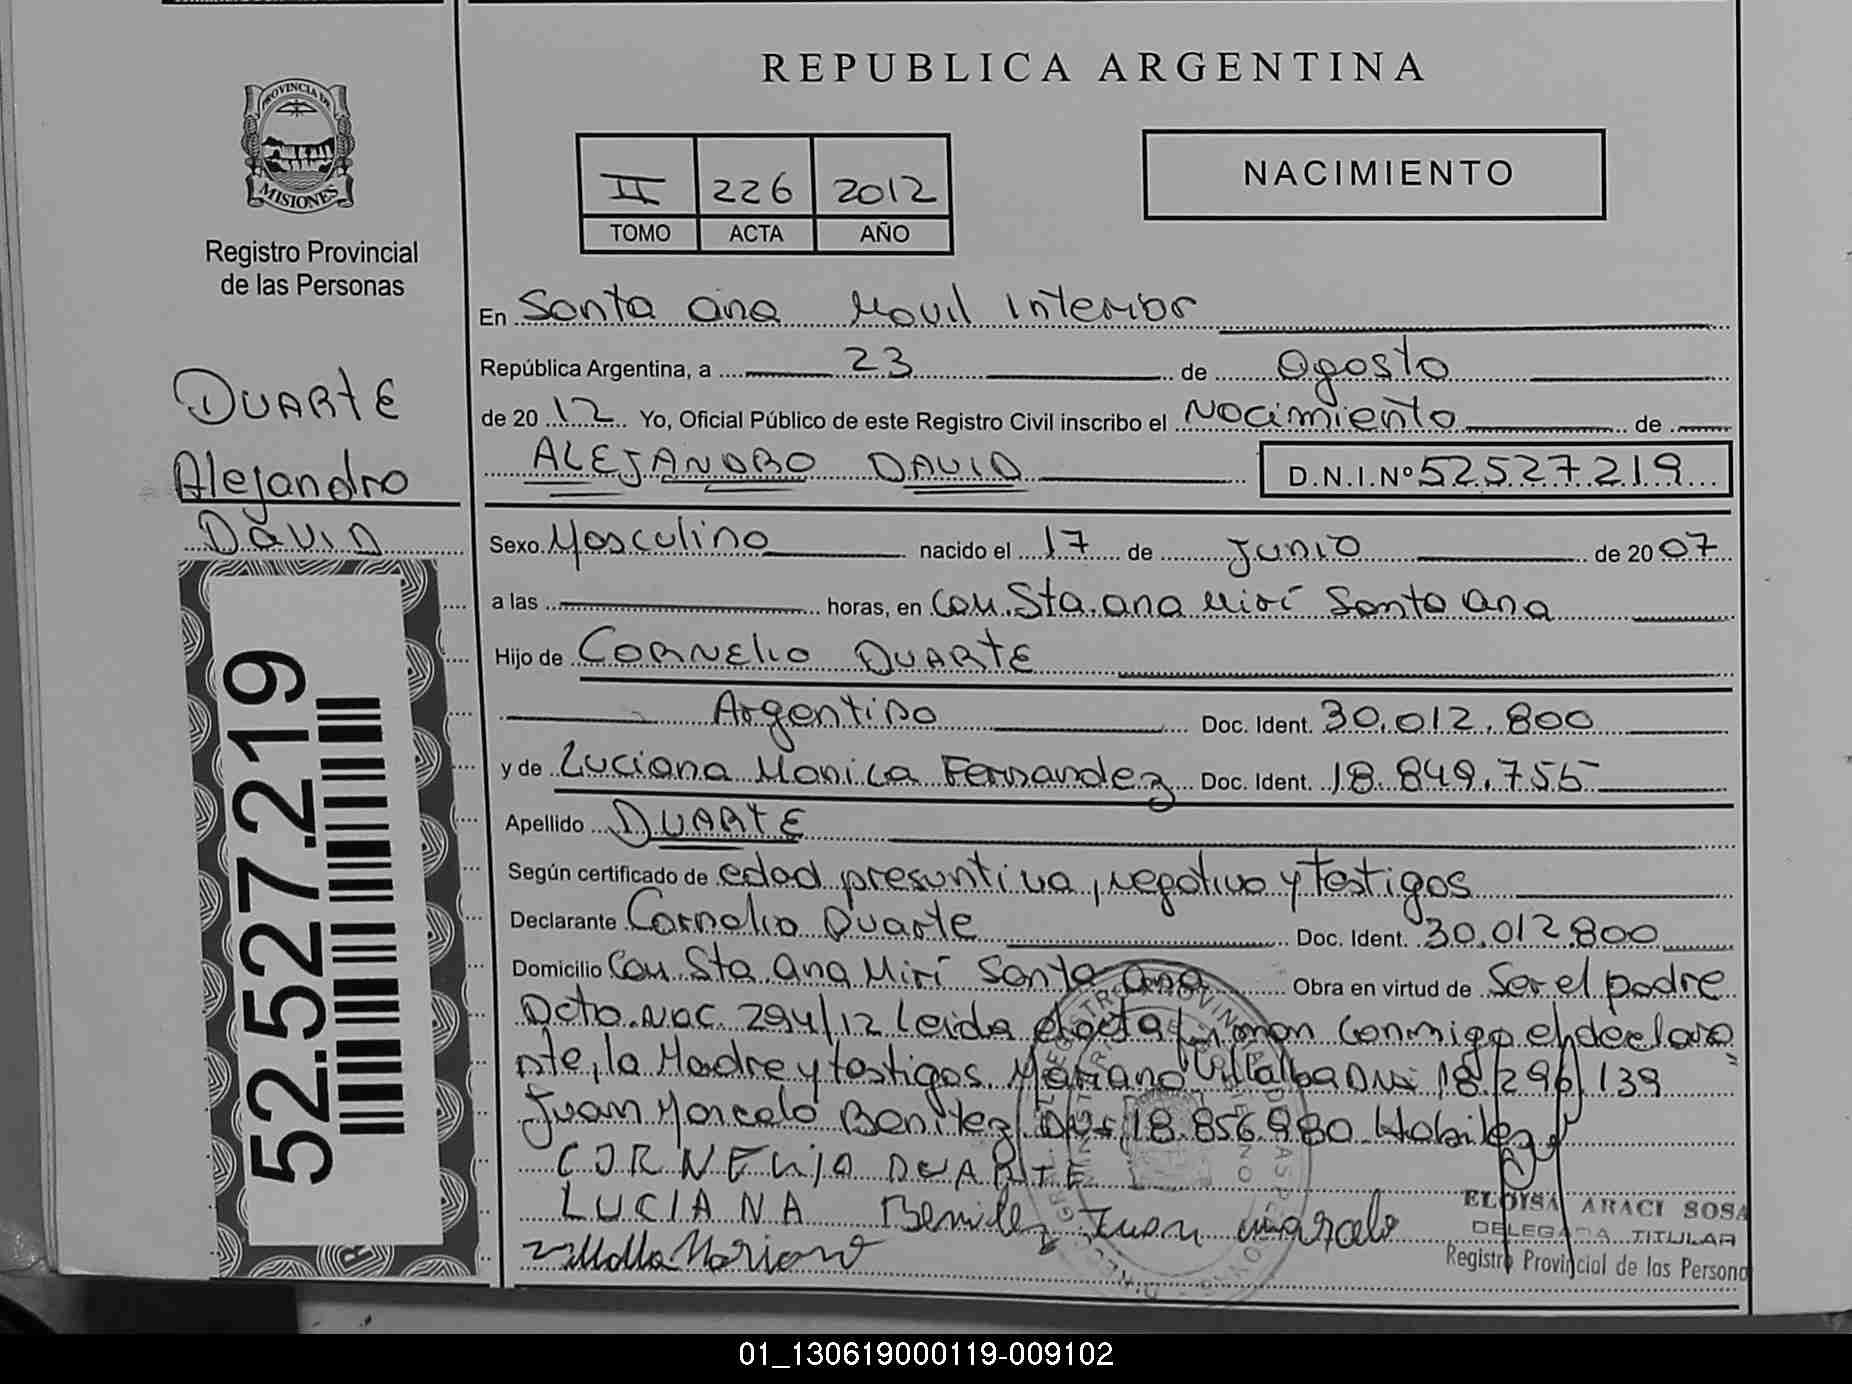 REPUBLICA ARGENTINA
PROVINCIA DE
MISIONES
Registro Provincial
de las Personas
II 226 2012
TOMO ACTA AÑO
NACIMIENTO
En Santa Ana Movil Interior
República Argentina, a 23 de Agosto
de 2012 Yo, Oficial Público de este Registro Civil inscribo el Nacimiento de
ALEJANDRO DAVID D.N.I.Nº 52527219
DUARTE
Alejandro
DAVID
Sexo Masculino nacido el 17 de Junio de 2007
a las horas, en Com. Sta. Ana Mirí Santa Ana
Hijo de CORNELIO DUARTE
Argentino Doc. Ident. 30.012.800
y de Luciana Monica Fernandez Doc. Ident. 18.849.755
Apellido DUARTE
Según certificado de edad presuntiva, negativo y testigos
Declarante Cornelio Duarte Doc. Ident. 30.012.800
Domicilio Com. Sta. Ana Mirí Santa Ana Obra en virtud de Ser el padre
Dcto. Nac. 294/12 Leida el acta firman conmigo el declara
nte, la Madre y testigos Mariano Villalba DNI 18.296.139
Juan Marcelo Benitez DNI 18.856.980 Habiles
CORNELIO DUARTE
LUCIANA Benitez Juan Marcelo
Villalba Mariano
ELOISA ARACI SOSA
DELEGADA TITULAR
Registro Provincial de las Persona
52.527.219
01_130619000119-009102